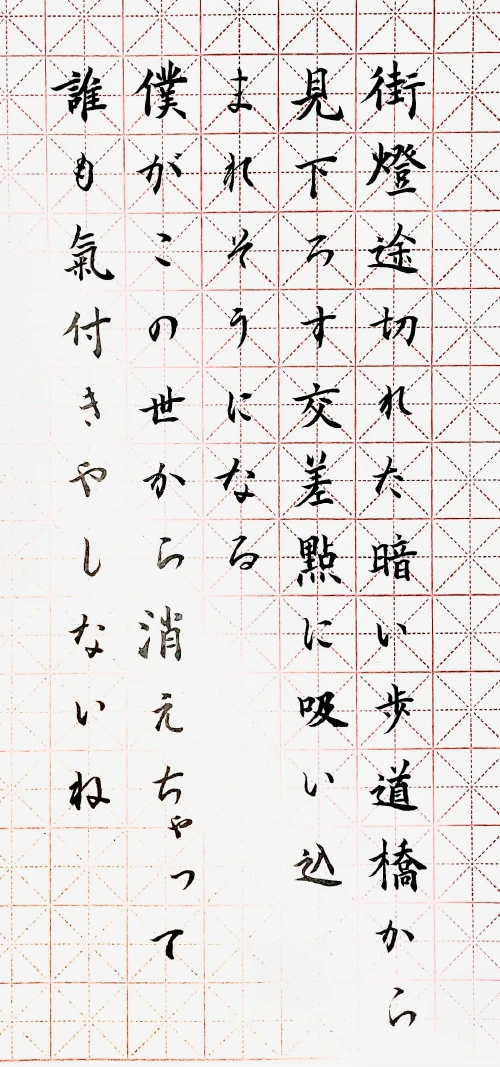 街燈途切れた暗い歩道橋から
見下ろす交差點に吸い込
まれそうになる
僕がこの世から消えちゃって
誰も氣付きやしないね